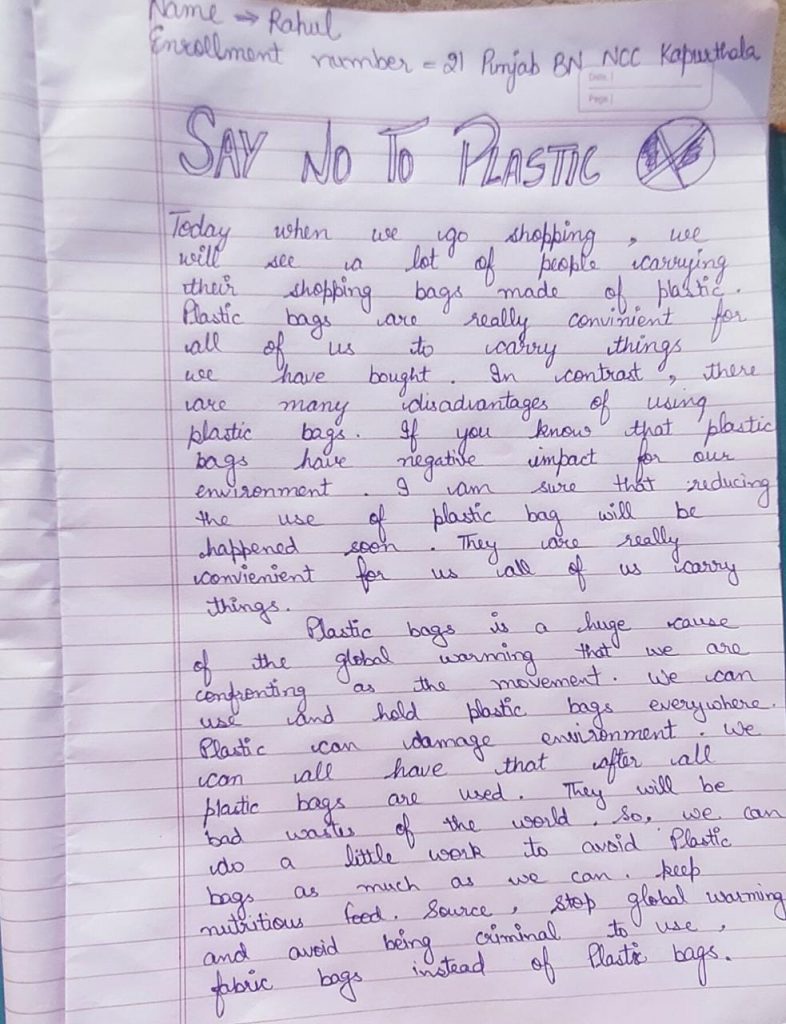 Name → Rahul
Enrollment number = 21 Punjab BN NCC Kapurthala
Date
Page
SAY NO TO PLASTIC
Today when we go shopping, we
will see a lot of people carrying
their shopping bags made of plastic.
Plastic bags are really convinient for
all of us to carry things
we have bought. In contrast, there
are many disadvantages of using
plastic bags. If you know that plastic
bags have negative impact for our
environment. I am sure that reducing
the use of plastic bag will be
happened soon. They are really
convienient for us all of us carry
things.
Plastic bags is a huge cause
of the global warming that we are
confronting as the movement. We can
use and hold plastic bags everywhere.
Plastic can damage environment. We
can all have that after all
plastic bags are used. They will be
bad wastes of the world. So, we can
do a little work to avoid Plastic
bags as much as we can. keep
nutritious feed. Source, stop global warming
and avoid being criminal to use,
fabric bags instead of Plastic bags.